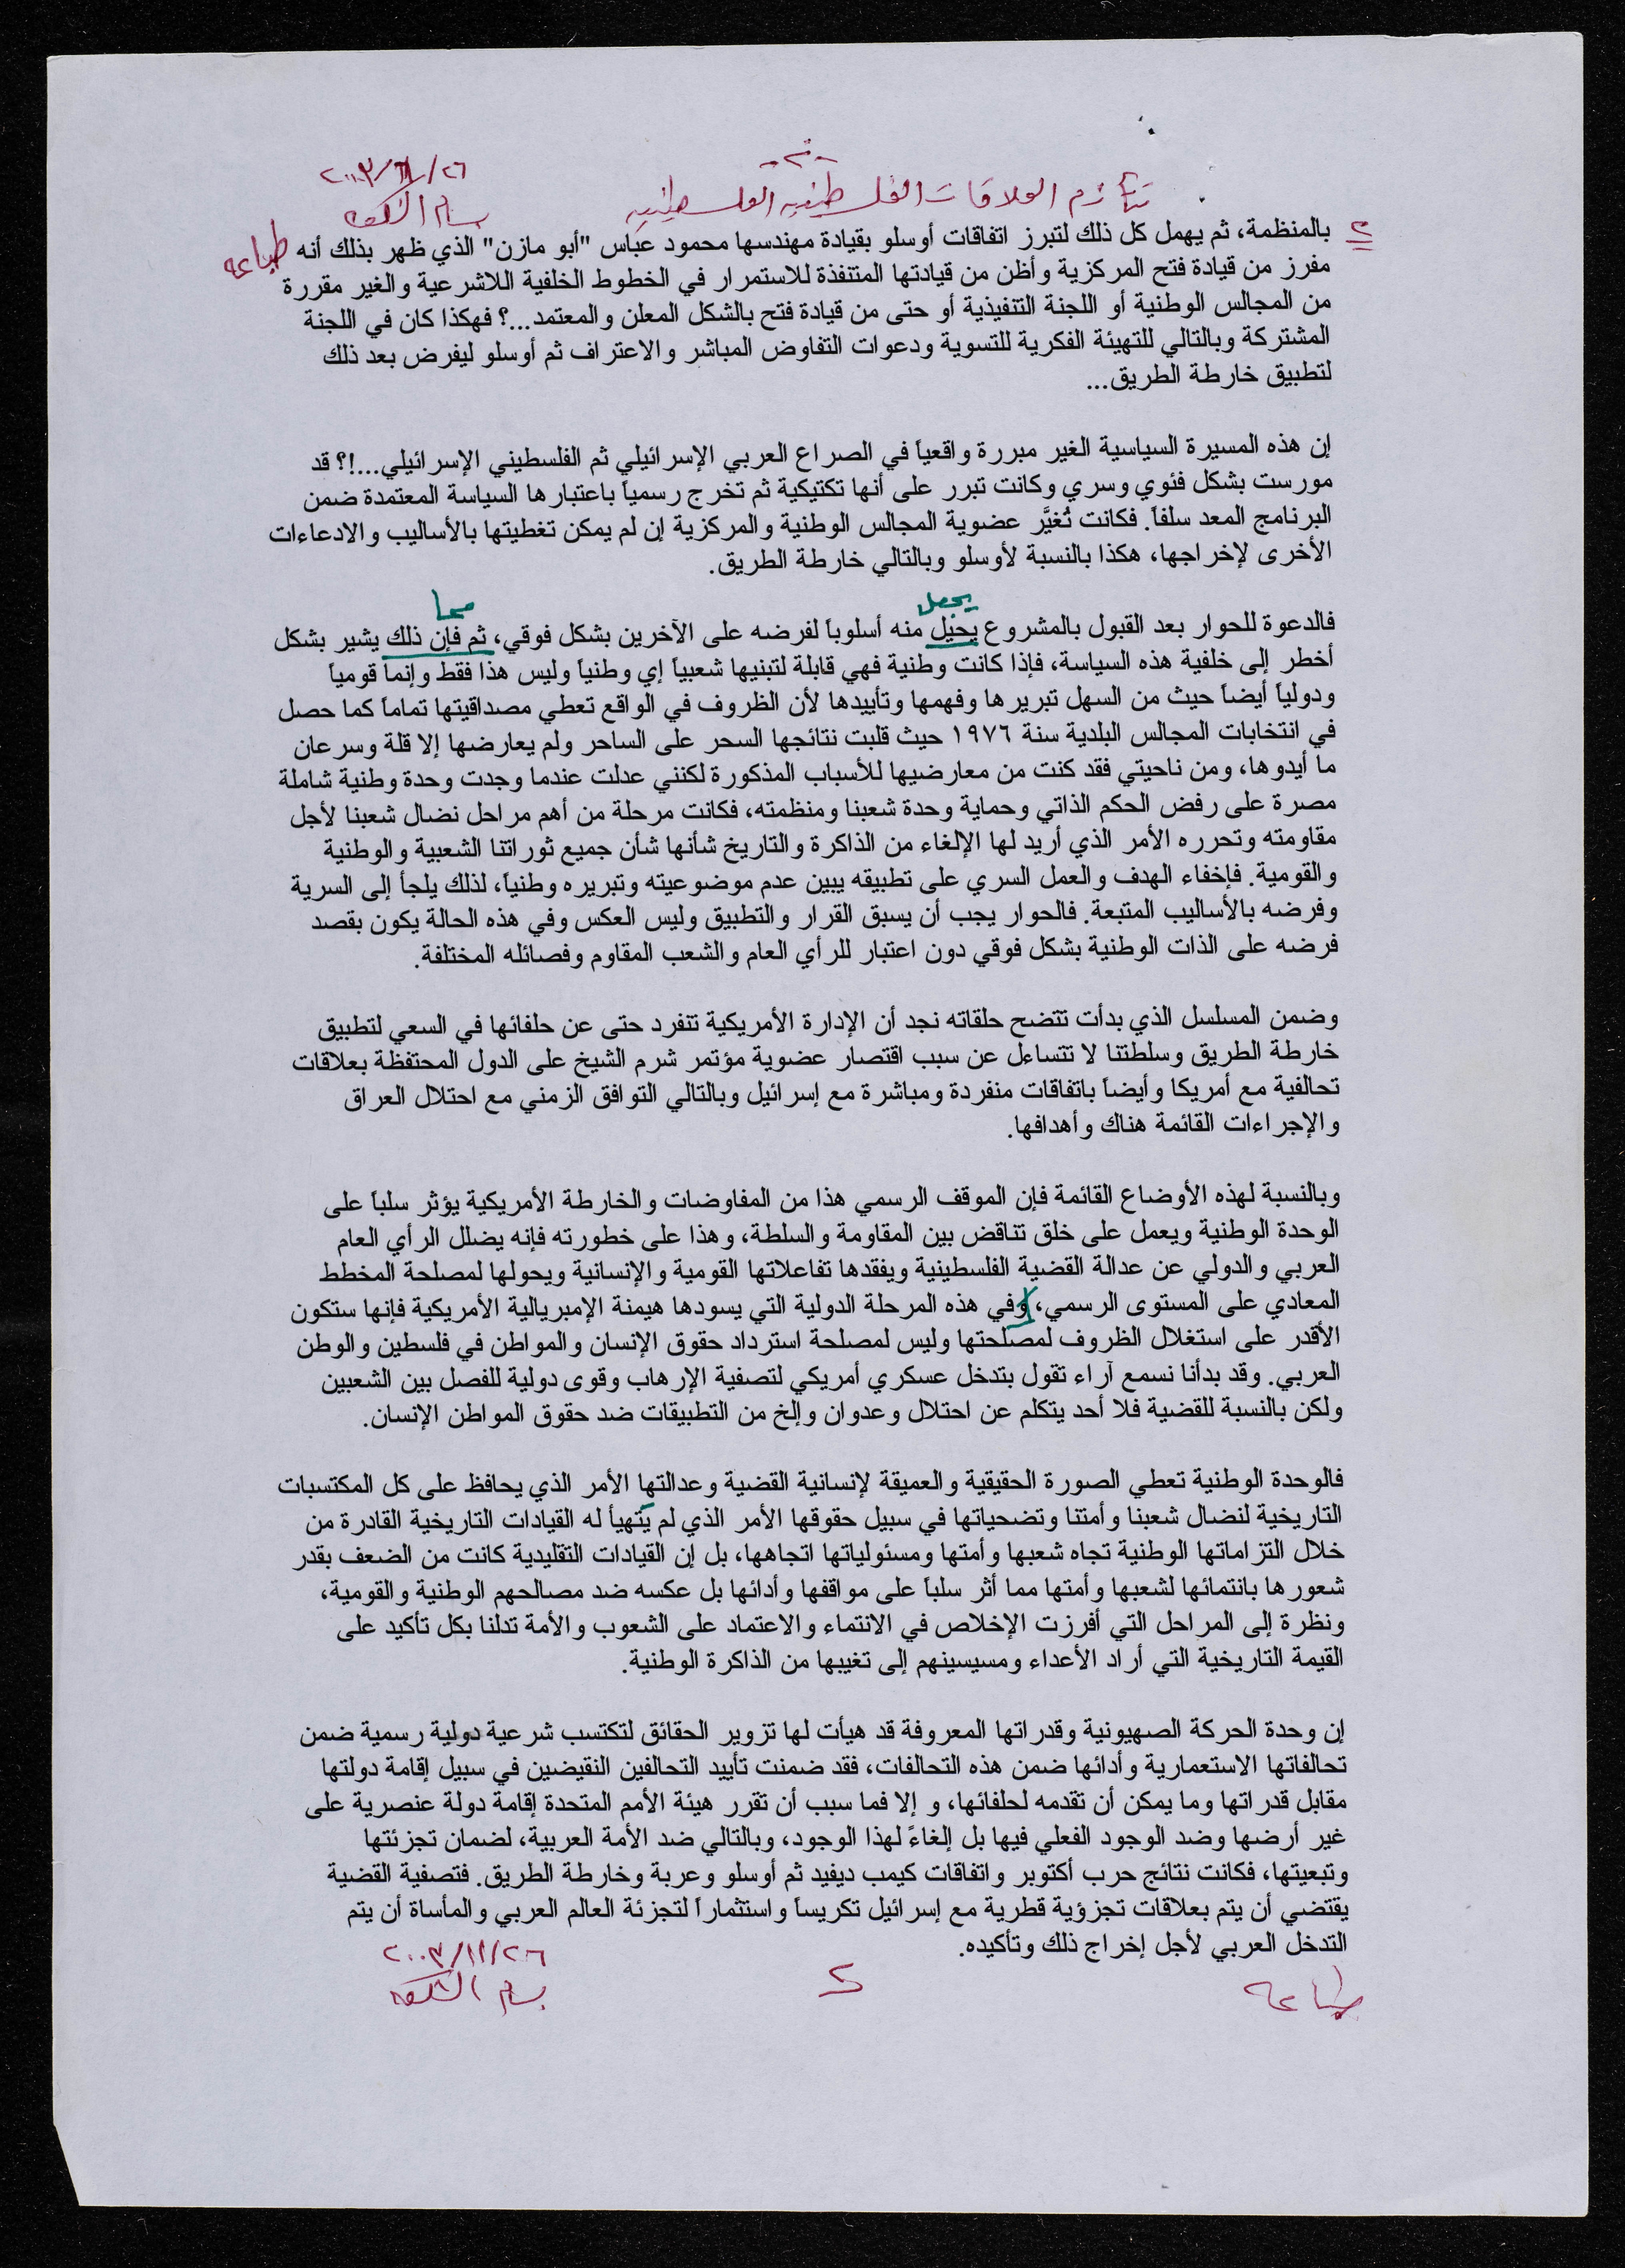 -٢-
٢٠٠٣/١١/٢٦
تأزم العلاقات الفلسطينيه الفلسطينيه
بسام الشكعه
طباعه
٢
بالمنظمة، ثم يهمل كل ذلك لتبرز اتفاقات أوسلو بقيادة مهندسها محمود عباس "أبو مازن" الذي ظهر بذلك أنه
مفرز من قيادة فتح المركزية وأظن من قيادتها المتنفذة للاستمرار في الخطوط الخلفية اللاشرعية والغير مقررة
من المجالس الوطنية أو اللجنة التنفيذية أو حتى من قيادة فتح بالشكل المعلن والمعتمد...؟ فهكذا كان في اللجنة
المشتركة وبالتالي للتهيئة الفكرية للتسوية ودعوات التفاوض المباشر والاعتراف ثم أوسلو ليفرض بعد ذلك
لتطبيق خارطة الطريق...
إن هذه المسيرة السياسية الغير مبررة واقعياً في الصراع العربي الإسرائيلي ثم الفلسطيني الإسرائيلي...!؟ قد
مورست بشكل فئوي وسري وكانت تبرر على أنها تكتيكية ثم تخرج رسمياً باعتبارها السياسة المعتمدة ضمن
البرنامج المعد سلفاً. فكانت تُغيَّر عضوية المجالس الوطنية والمركزية إن لم يمكن تغطيتها بالأساليب والادعاءات
الأخرى لإخراجها، هكذا بالنسبة لأوسلو وبالتالي خارطة الطريق.
يجعل
مما
فالدعوة للحوار بعد القبول بالمشروع يحيل منه أسلوباً لفرضه على الآخرين بشكل فوقي، ثم فإن ذلك يشير بشكل
أخطر إلى خلفية هذه السياسة، فإذا كانت وطنية فهي قابلة لتبنيها شعبياً إي وطنياً وليس هذا فقط وإنما قومياً
ودولياً أيضاً حيث من السهل تبريرها وفهمها وتأييدها لأن الظروف في الواقع تعطي مصداقيتها تماماً كما حصل
في انتخابات المجالس البلدية سنة ١٩٧٦ حيث قلبت نتائجها السحر على الساحر ولم يعارضها إلا قلة وسرعان
ما أيدوها، ومن ناحيتي فقد كنت من معارضيها للأسباب المذكورة لكنني عدلت عندما وجدت وحدة وطنية شاملة
مصرة على رفض الحكم الذاتي وحماية وحدة شعبنا ومنظمته، فكانت مرحلة من أهم مراحل نضال شعبنا لأجل
مقاومته وتحرره الأمر الذي أريد لها الإلغاء من الذاكرة والتاريخ شأنها شأن جميع ثوراتنا الشعبية والوطنية
والقومية. فإخفاء الهدف والعمل السري على تطبيقه يبين عدم موضوعيته وتبريره وطنياً، لذلك يلجأ إلى السرية
وفرضه بالأساليب المتبعة. فالحوار يجب أن يسبق القرار والتطبيق وليس العكس وفي هذه الحالة يكون بقصد
فرضه على الذات الوطنية بشكل فوقي دون اعتبار للرأي العام والشعب المقاوم وفصائله المختلفة.
وضمن المسلسل الذي بدأت تتضح حلقاته نجد أن الإدارة الأمريكية تنفرد حتى عن حلفائها في السعي لتطبيق
خارطة الطريق وسلطتنا لا تتساءل عن سبب اقتصار عضوية مؤتمر شرم الشيخ على الدول المحتفظة بعلاقات
تحالفية مع أمريكا وأيضاً باتفاقات منفردة ومباشرة مع إسرائيل وبالتالي التوافق الزمني مع احتلال العراق
والإجراءات القائمة هناك وأهدافها.
وبالنسبة لهذه الأوضاع القائمة فإن الموقف الرسمي هذا من المفاوضات والخارطة الأمريكية يؤثر سلباً على
الوحدة الوطنية ويعمل على خلق تناقض بين المقاومة والسلطة، وهذا على خطورته فإنه يضلل الرأي العام
العربي والدولي عن عدالة القضية الفلسطينية ويفقدها تفاعلاتها القومية والإنسانية ويحولها لمصلحة المخطط
المعادي على المستوى الرسمي، وفي هذه المرحلة الدولية التي يسودها هيمنة الإمبريالية الأمريكية فإنها ستكون
الأقدر على استغلال الظروف لمصلحتها وليس لمصلحة استرداد حقوق الإنسان والمواطن في فلسطين والوطن
العربي. وقد بدأنا نسمع آراء تقول بتدخل عسكري أمريكي لتصفية الإرهاب وقوى دولية للفصل بين الشعبين
ولكن بالنسبة للقضية فلا أحد يتكلم عن احتلال وعدوان وإلخ من التطبيقات ضد حقوق المواطن الإنسان.
فالوحدة الوطنية تعطي الصورة الحقيقية والعميقة لإنسانية القضية وعدالتها الأمر الذي يحافظ على كل المكتسبات
التاريخية لنضال شعبنا وأمتنا وتضحياتها في سبيل حقوقها الأمر الذي لم يَتهيأ له القيادات التاريخية القادرة من
خلال التزاماتها الوطنية تجاه شعبها وأمتها ومسئولياتها اتجاهها، بل إن القيادات التقليدية كانت من الضعف بقدر
شعورها بانتمائها لشعبها وأمتها مما أثر سلباً على مواقفها وأدائها بل عكسه ضد مصالحهم الوطنية والقومية،
ونظرة إلى المراحل التي أفرزت الإخلاص في الانتماء والاعتماد على الشعوب والأمة تدلنا بكل تأكيد على
القيمة التاريخية التي أراد الأعداء ومسيسينهم إلى تغيبها من الذاكرة الوطنية.
إن وحدة الحركة الصهيونية وقدراتها المعروفة قد هيأت لها تزوير الحقائق لتكتسب شرعية دولية رسمية ضمن
تحالفاتها الاستعمارية وأدائها ضمن هذه التحالفات، فقد ضمنت تأييد التحالفين النقيضين في سبيل إقامة دولتها
مقابل قدراتها وما يمكن أن تقدمه لحلفائها، و إلا فما سبب أن تقرر هيئة الأمم المتحدة إقامة دولة عنصرية على
غير أرضها وضد الوجود الفعلي فيها بل إلغاءً لهذا الوجود، وبالتالي ضد الأمة العربية، لضمان تجزئتها
وتبعيتها، فكانت نتائج حرب أكتوبر واتفاقات كيمب ديفيد ثم أوسلو وعربة وخارطة الطريق. فتصفية القضية
يقتضي أن يتم بعلاقات تجزؤية قطرية مع إسرائيل تكريساً واستثماراً لتجزئة العالم العربي والمأساة أن يتم
التدخل العربي لأجل إخراج ذلك وتأكيده.
٢٠٠٣/١١/٢٦
طباعه
٢
بسام الشكعه